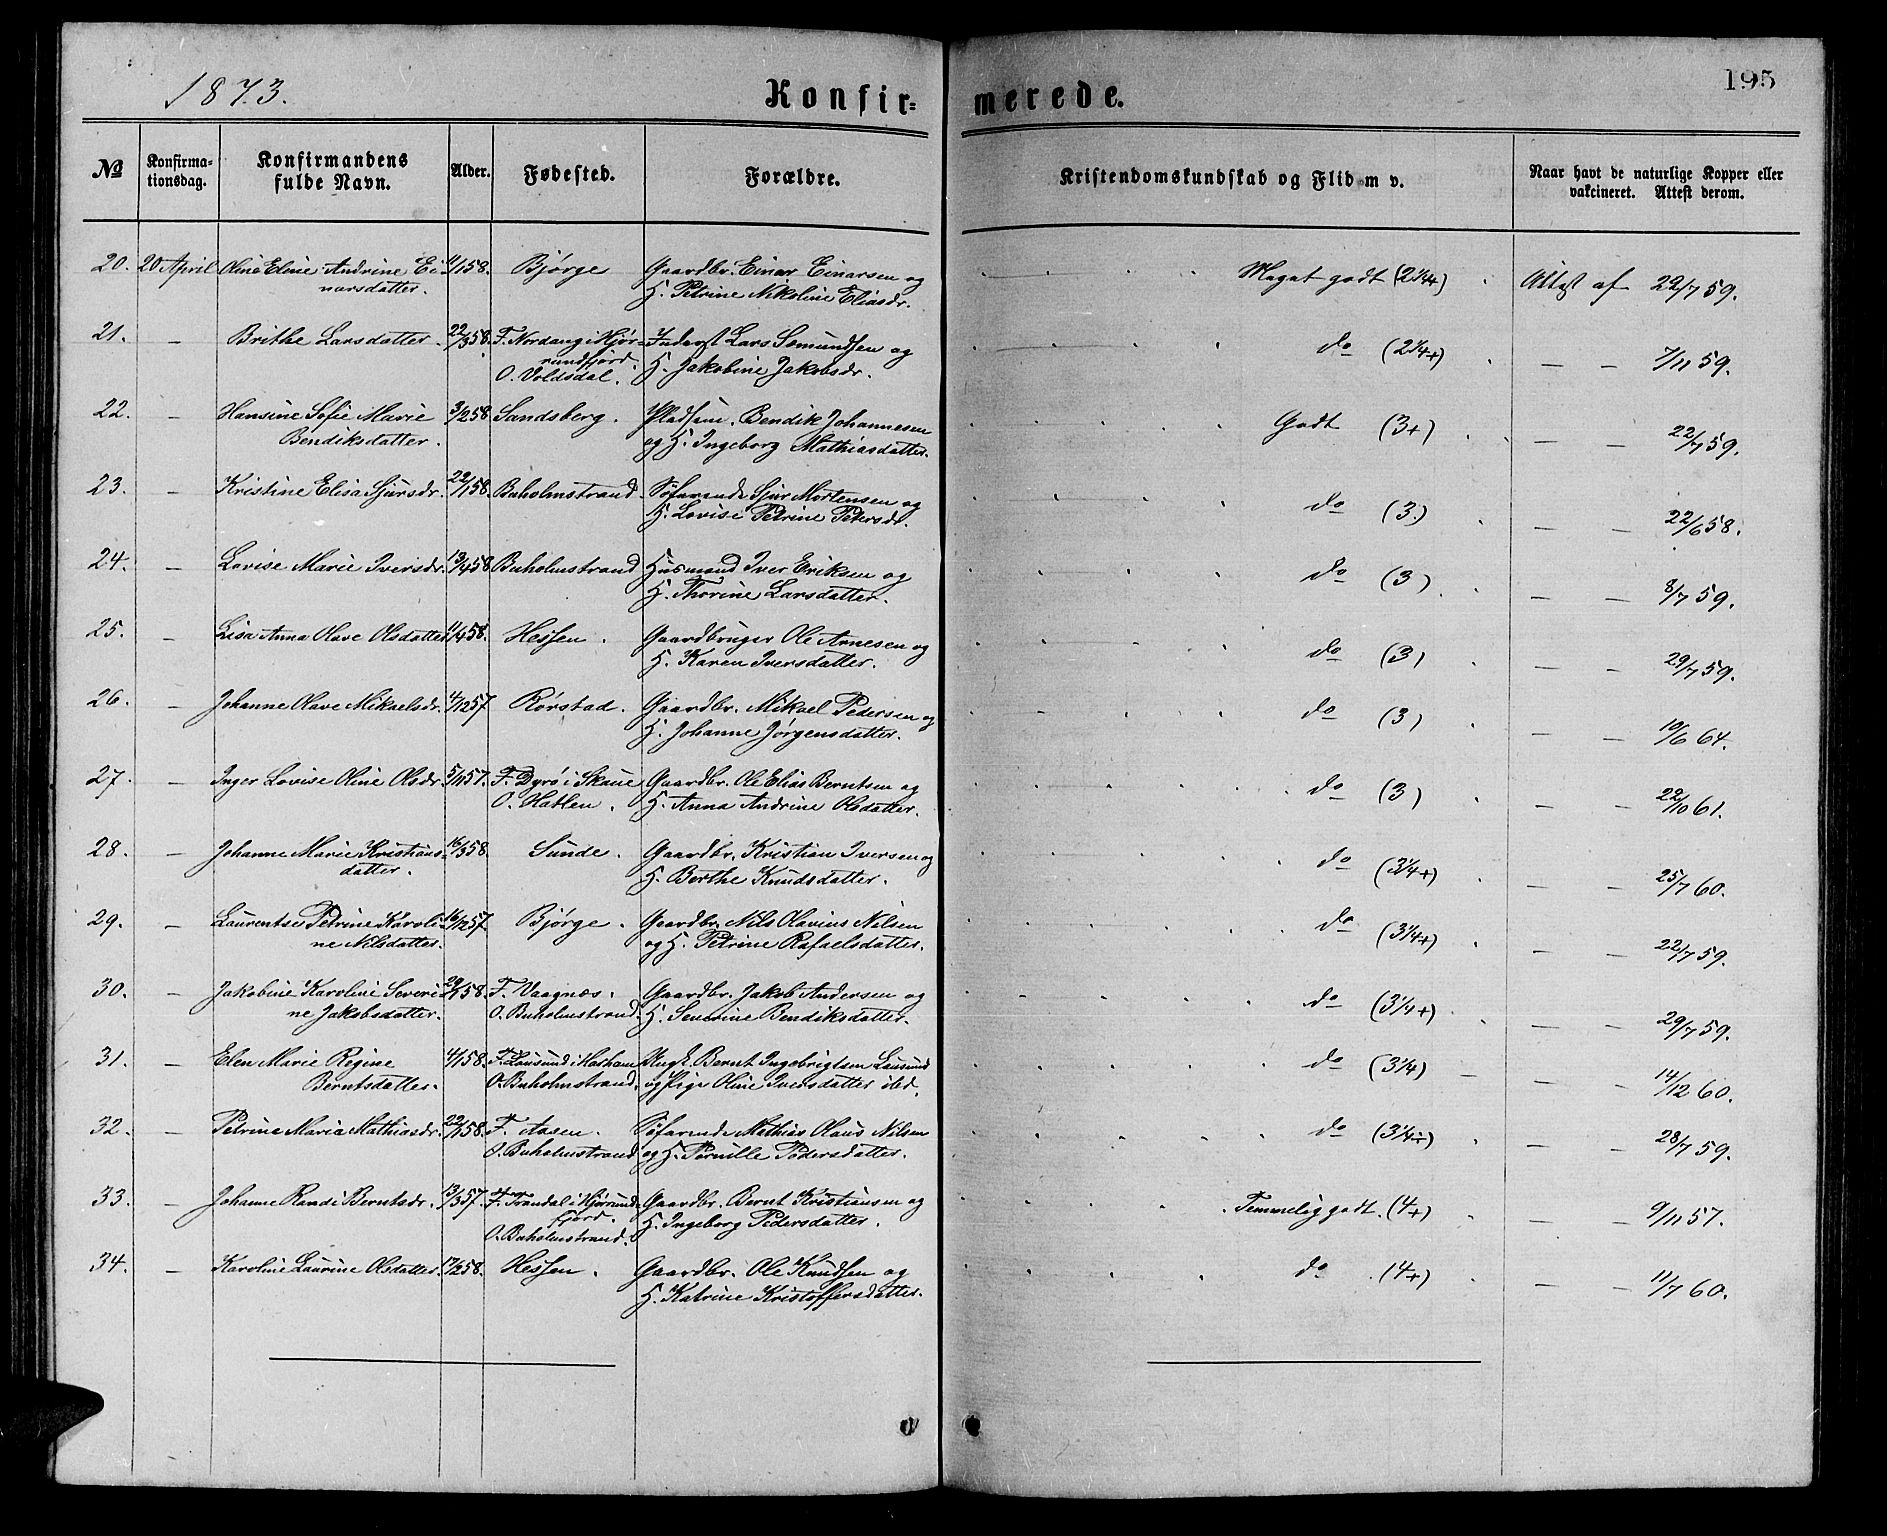 1873.
Konfir=
merede.
195
No
Konfirma-
tionsdag.
Konfirmandens
fulde Navn.
Alder.
Fødested.
Forældre.
Kristendomskundskab og Flid m v.
Naar havt de naturlige Kopper eller
vakcineret. Attest derom.
20. 20 April Oline Eline Andrine Ei 4/1 58. Bjørge Gaardbr. Einar Einarsen og Meget godt (2 1/4+) Attest af 22/7 59.
narsdatter. H. Petrine Nikoline Eliasdr.
21. — Brithe Larsdatter. 22/3 58. F. Nordang i Hjør- Inderst Lars Semundsen og do (2 1/4+) — — 7/11 59.
rundfjord. H. Jakobine Jakobsdr.
O. Voldsdal.
22. — Hansine Sofie Marie 3/2 58 Sandsberg. Pladsem. Bendik Johannesen Godt (3+) — — 22/7 59.
Bendiksdatter. og H. Ingeborg Mathiasdatter.
23. — Kristine Elisa Sjursdr. 22/1 58. Buholmstrand Søfarende Sjur Mortensen og do (3.) — — 22/6 58.
H. Lovise Petrine Petersdr.
24. — Lovise Marie Iversdr. 13/4 58 Buholmstrand Husmand Iver Eriksen og do (3) — — 8/7 59.
H. Thorine Larsdatter.
25. — Lisa Anna Olave Olsdatter 11/4 58. Hessen. Gaardbruger Ole Arnesen og do (3) — — 29/7 59.
H. Karen Iversdatter.
26. — Johanne Olave Mikaelsdr. 4/12 57 Rørstad. Gaardbr. Mikael Pedersen og do (3) — — 10/6 64.
H. Johanne Jørgensdatter.
27. — Inger Lovise Oline Olsdr. 5/11 57. F. Dyrø i Skaue Gaardbr. Ole Elias Berntsen og do (3) — — 22/10 61.
O. Hatlen. H. Anna Andrine Olsdatter.
28. — Johanne Marie Kristians- 16/3 58. Sunde. Gaardbr. Kristian Iversen og do (3 1/4+) — — 25/7 60.
datter. H. Berthe Knudsdatter.
29. — Laurentse Petrine Karoli- 16/12 57. Bjørge. Gaardbr. Nils Olavius Nilsen do (3 1/4+) — — 22/7 59.
ne Nilsdatter. og H. Petrine Rafaelsdatter.
30. — Jakobine Karoline Severi- 58. F. Vaagnæs. Gaardbr. Jakob Andersen og do (3 1/4+) — — 29/7 59.
ne Jakobsdatter. O. Buholmstrand. H. Severine Bendiksdatter.
31. — Elen Marie Regine 4/1 58. F. Lausund i Harham Ungk. Bernt Ingebrigtsen Lausund do (3 1/4) — — — 14/12 60.
Berntsdatter. O. Buholmstrand. og Pige Oline Iversdatter ibd.
32. — Petrine Maria Mathiasdr. 22/1 58. F. Aasen. Søfarende Mathias Olaus Nilsen do (3 1/4÷) — — 28/7 59.
O. Buholmstrand og H. Pernille Pedersdatter.
33. — Johanne Randi Berntsdr. 13/3 57. F. Trandal i Hjørund- Gaardbr. Bernt Kristiansen og Temmelig godt. (4+) — — 9/11 57.
fjord. H. Ingeborg Pedersdatter.
O. Buholmstrand.
34. — Karoline Laurine Olsdatter. 17/2 58. Hessen. Gaardbr. Ole Knudsen og do (4+) — — 11/7 60.
H. Katrine Kristoffersdatter.